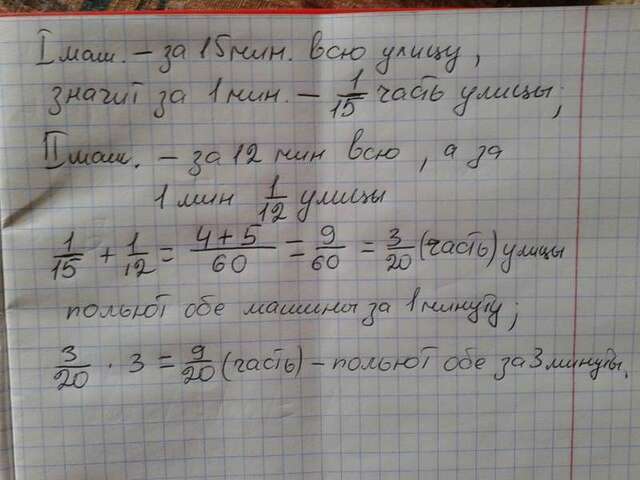 I маш. – за 15 мин. всю улицу,
значит за 1 мин. – 1/15 часть улицы;
II маш. – за 12 мин всю, а за
1 мин 1/12 улицы
1/15 + 1/12 = 4+5/60 = 9/60 = 3/20 (часть) улицы
польют обе машины за 1 минуту;
3/20 · 3 = 9/20 (часть) – польют обе за 3 минуты.